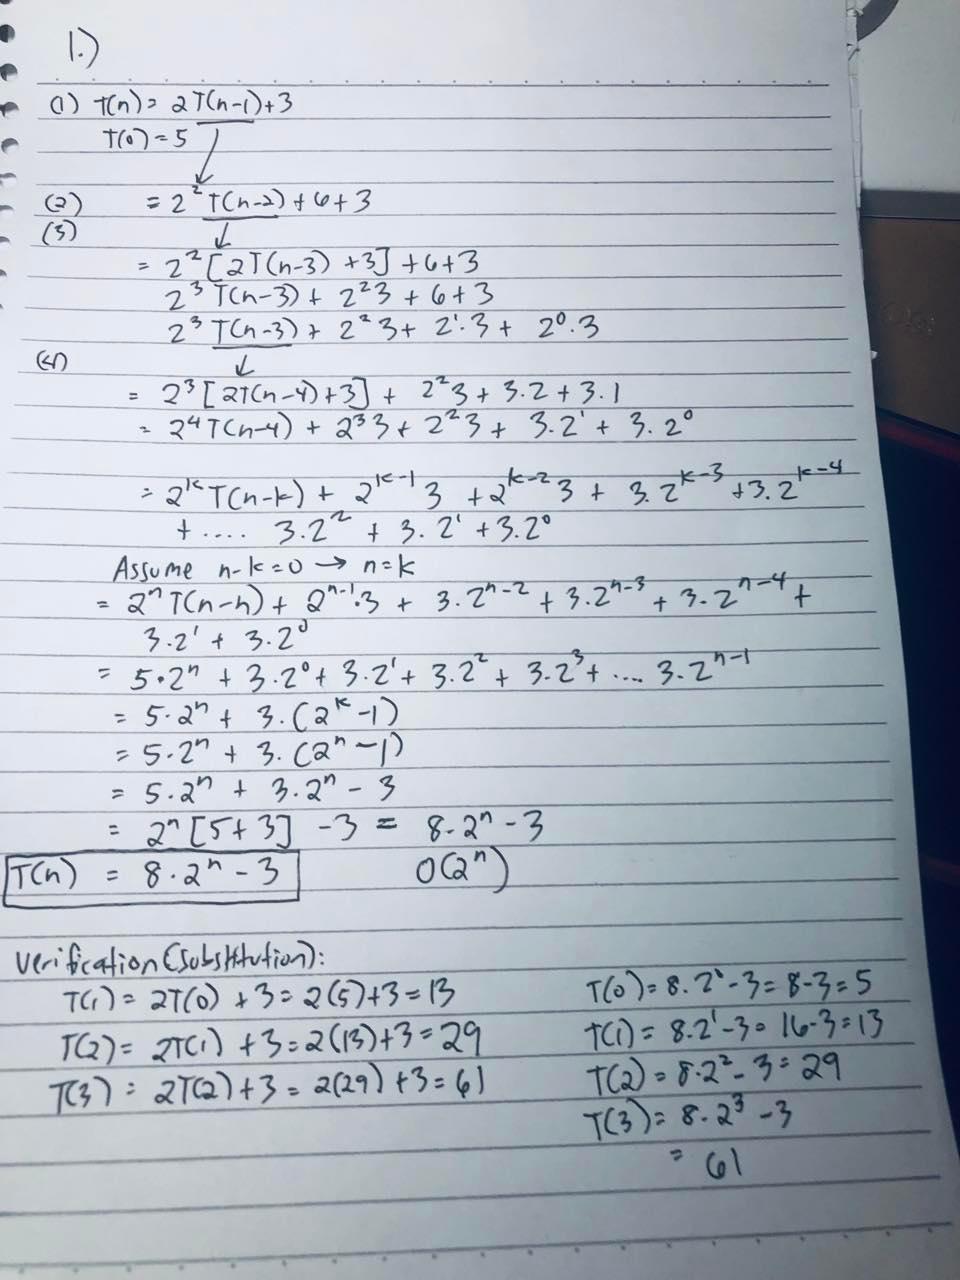 1.)
(1) T(n) = 2T(n-1)+3
T(0) = 5
(2) = 2²T(n-2) + 6+3
(3)
= 2²[2T(n-3) +3] +6+3
2³ T(n-3) + 2²3 + 6+3
2³ T(n-3) + 2²3 + 2¹.3 + 2⁰.3
(4)
= 2³[2T(n-4)+3] + 2²3 + 3.2 + 3.1
= 2⁴T(n-4) + 2³3 + 2²3 + 3.2¹ + 3.2⁰
= 2^k T(n-k) + 2^(k-1) 3 + 2^(k-2) 3 + 3.2^(k-3) + 3.2^(k-4)
+ .... 3.2² + 3.2¹ + 3.2⁰
Assume n-k=0 → n=k
= 2ⁿT(n-n) + 2ⁿ⁻¹.3 + 3.2ⁿ⁻² + 3.2ⁿ⁻³ + 3.2ⁿ⁻⁴ +
3.2¹ + 3.2⁰
= 5.2ⁿ + 3.2⁰ + 3.2¹ + 3.2² + 3.2³ + .... 3.2ⁿ⁻¹
= 5.2ⁿ + 3.(2^k -1)
= 5.2ⁿ + 3.(2ⁿ -1)
= 5.2ⁿ + 3.2ⁿ - 3
= 2ⁿ[5+3] -3 = 8.2ⁿ - 3
T(n) = 8.2ⁿ - 3 O(2ⁿ)
Verification (Substitution):
T(1) = 2T(0) +3 = 2(5)+3 = 13 T(0) = 8.2⁰ -3 = 8-3 = 5
T(2) = 2T(1) +3 = 2(13)+3 = 29 T(1) = 8.2¹ -3 = 16-3 = 13
T(3) = 2T(2)+3 = 2(29)+3 = 61 T(2) = 8.2² - 3 = 29
T(3) = 8.2³ -3
= 61